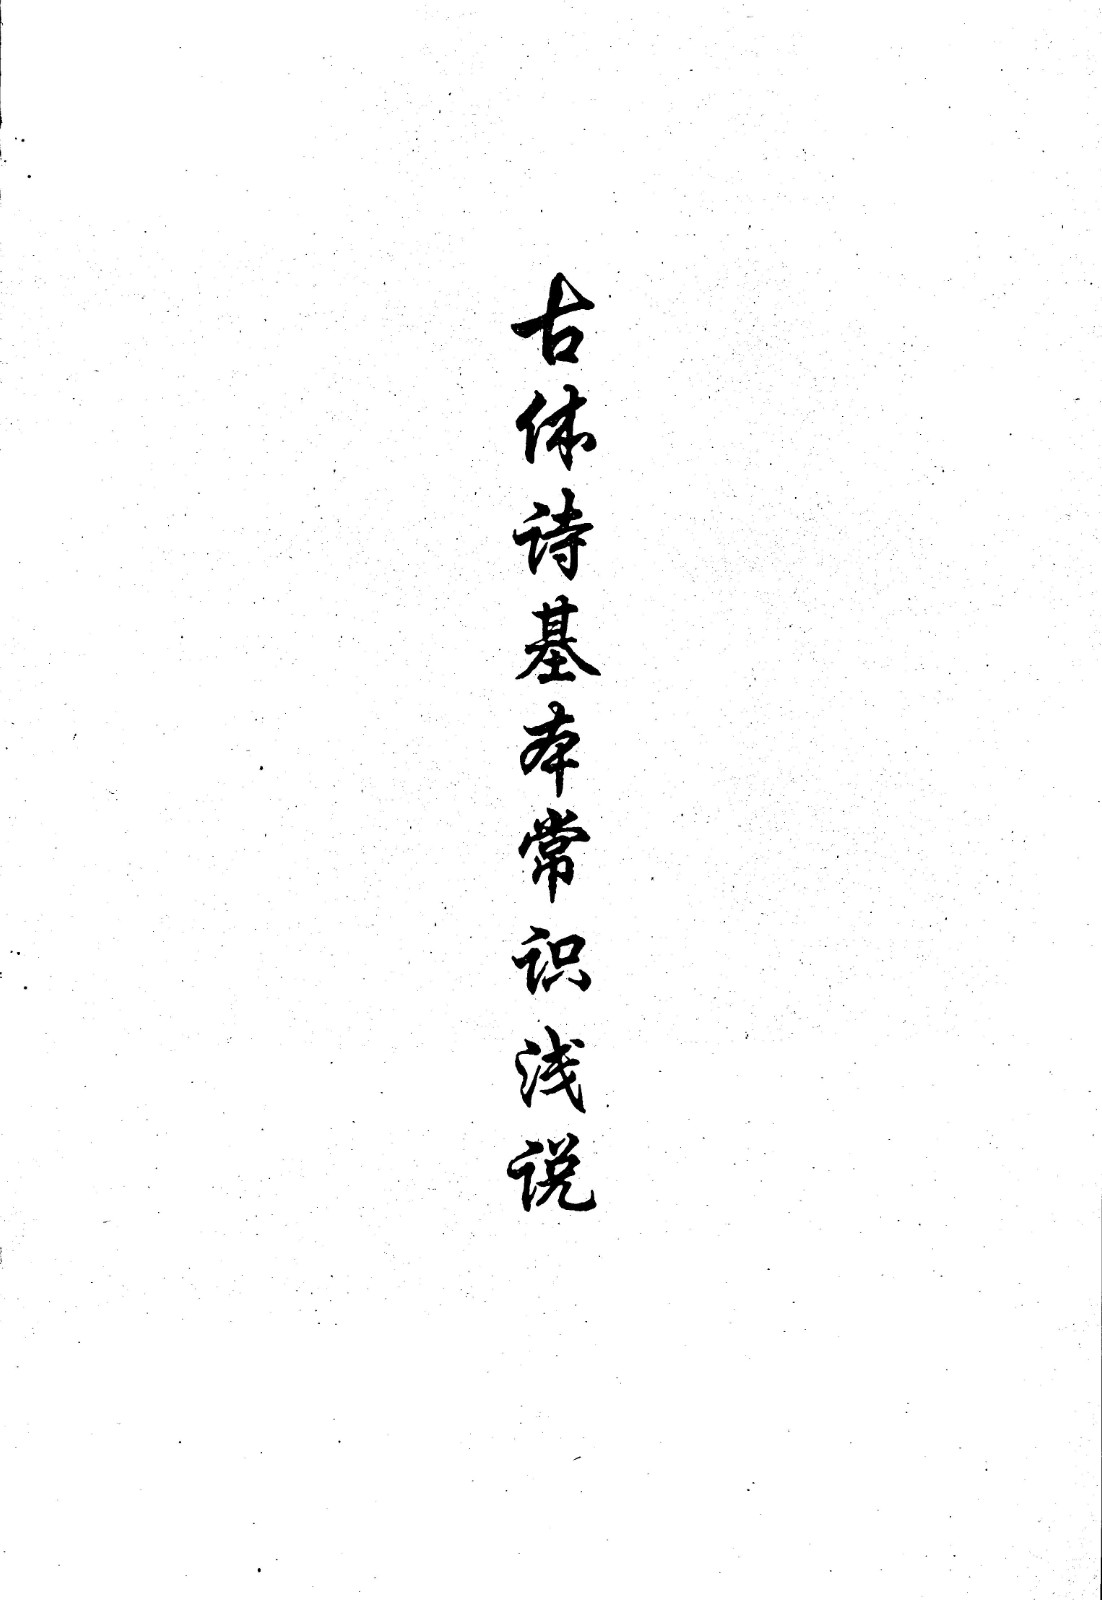 古体诗基本常识浅说